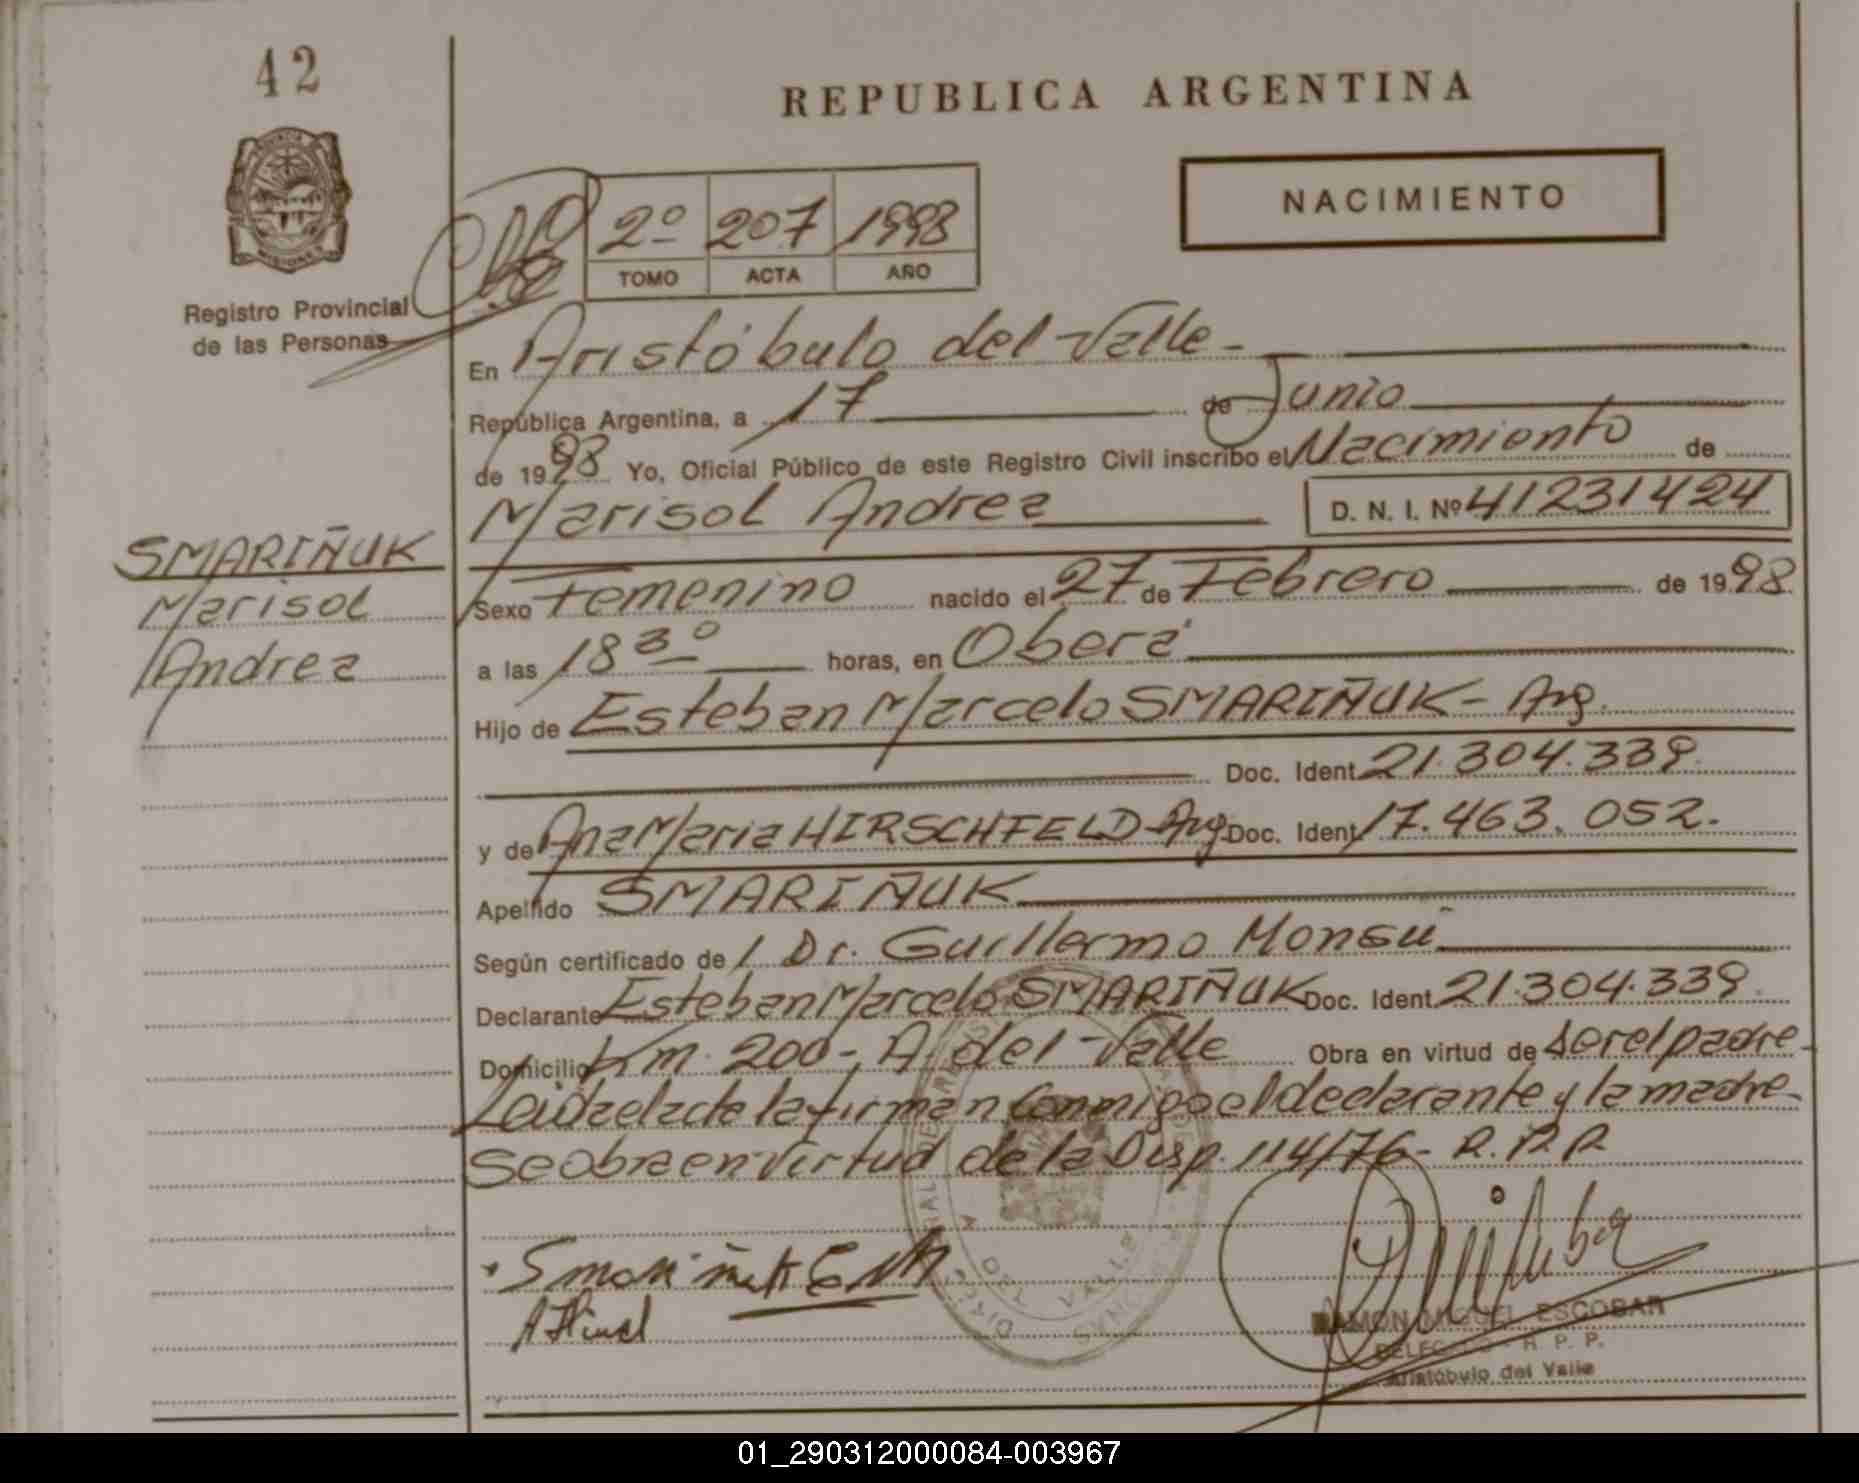 42
REPUBLICA ARGENTINA
NACIMIENTO
2º 207 1998
TOMO ACTA AÑO
MISIONES
Registro Provincial
de las Personas
En Aristóbulo del Valle -
República Argentina, a 17 de Junio
de 1998 Yo, Oficial Público de este Registro Civil inscribo el Nacimiento de
Marisol Andrea D. N. I. Nº 41231424
SMARIÑUK
Marisol
Andrea
Sexo Femenino nacido el 27 de Febrero de 1998.
a las 18 30 horas, en Oberá
Hijo de Esteban Marcelo SMARIÑUK - Arg.
Doc. Ident. 21.304.339.
y de Ana Maria HIRSCHFELD - Arg. Doc. Ident. 17.463.052.
Apellido SMARIÑUK
Según certificado de 1 Dr. Guillermo Monsú
Declarante Esteban Marcelo SMARIÑUK Doc. Ident. 21.304.339.
Domicilio Km. 200 - A. del Valle Obra en virtud de ser el padre -
Leida el acta la firman conmigo el declarante y la madre -
Se obra en virtud de la Disp. 114/76 -
A DEL VALLE
RAMON MIGUEL ESCOBAR
DELEGADO - R. P. P.
Aristóbulo del Valle
01_290312000084-003967